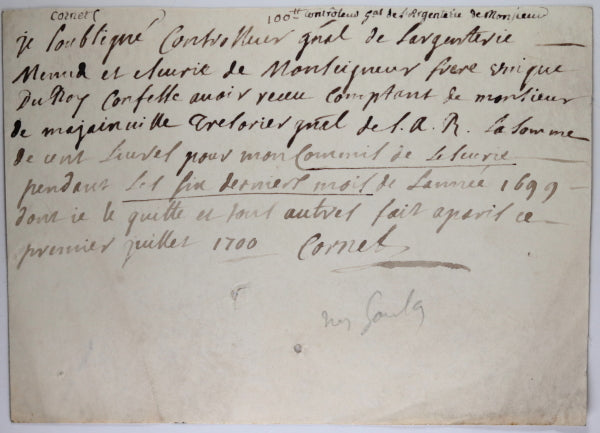 Cornet ( 100tt Controleur gal de l'Argenterie de Monsieur
je Soubsigné Controlleur gnal de Largenterie
Menus et escurie de Monseigneur frere unique
Du Roy Confesse auoir receu Comptant de monsieur
de majainuille Tresorier gnal de S. A. R. La Somme
de cent Liures pour mon Commis de Lescurie
pendant Les six derniers mois de Lannée 1699
dont je le quitte et tous autres fait aparis ce
premier juillet 1700 Cornet